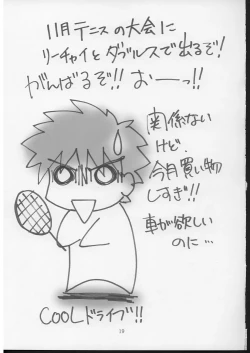 11月テニスの大会に
リーチャイとダブルスで出るぞ!
がんばるぞ!! おーっ!!
関係ない
けど、
今月買い物
しすぎ!!
車が欲しい
のに…
COOLドライブ!!
18